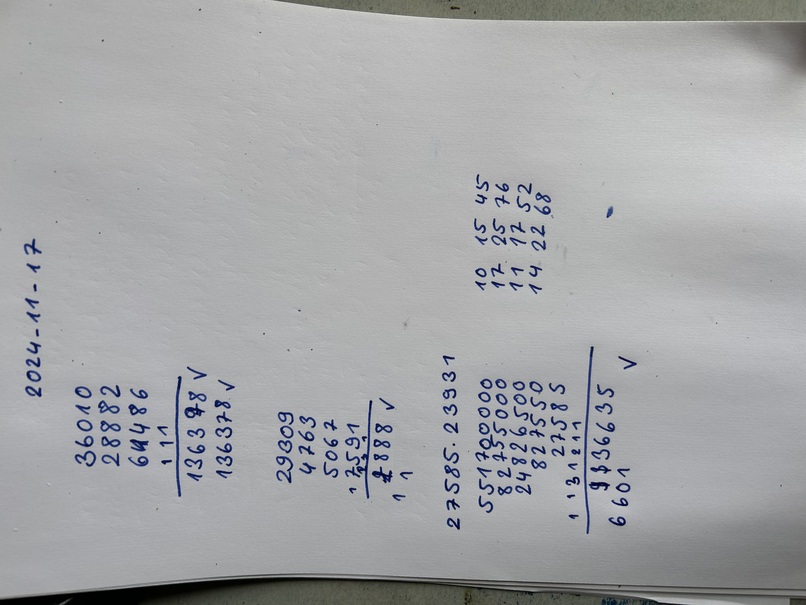 2024-11-17
36010
28882
64486
1 1 1
136378 √
136378 √
29309
4763
5067
7591
888 √
1 1
27585.23931
551700000
82755000
24826500
827550
27585
1 1 3 1 2 1 1
36635
6601 √
10 15 45
17 25 76
11 17 52
14 22 68